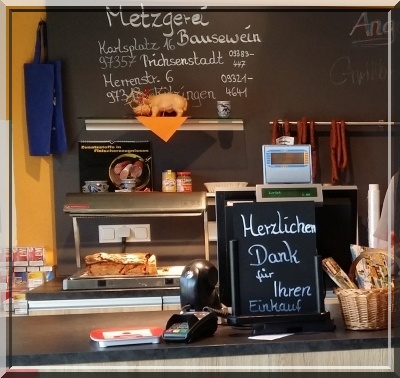 Metzgerei
Bausewein
Karlsplatz 16
97357 Prichsenstadt
09383-
447
Herrenstr. 6
09321-
4641
Ang
Herzlichen
Dank
für
Ihren
Einkauf